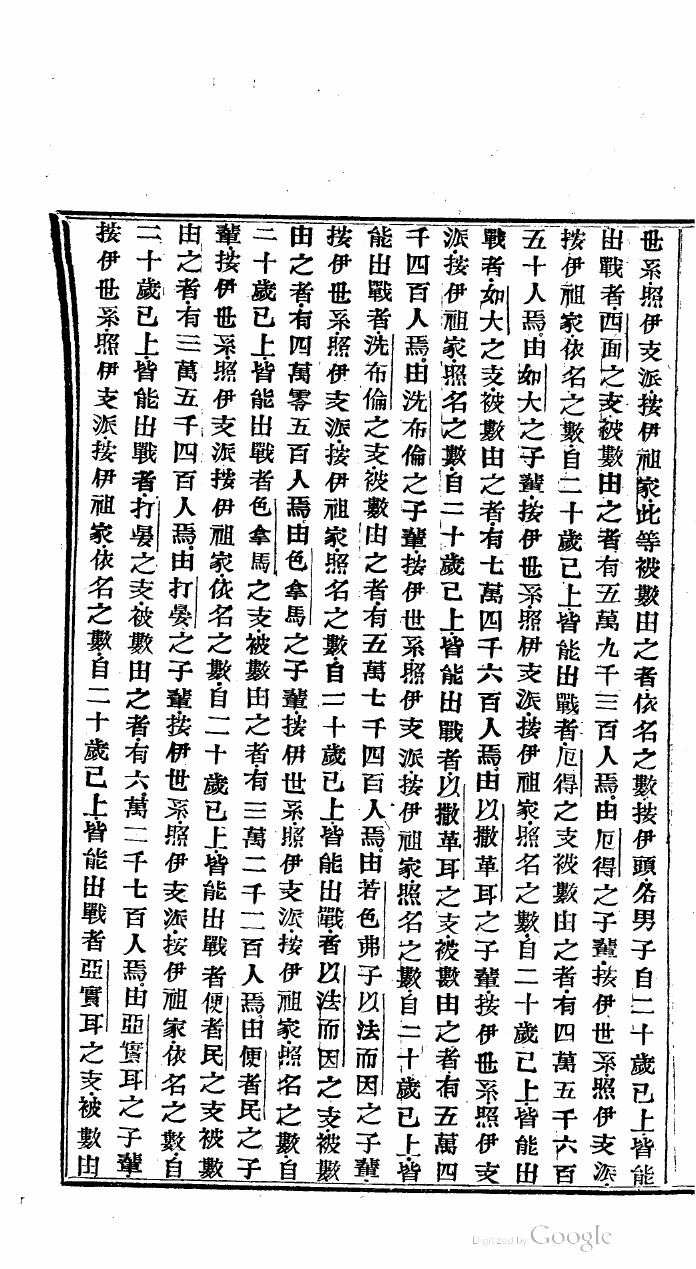 世系照伊支派按伊祖家此等被數由之者依名之數按伊頭各男子自二十歲已上皆能
出戰者西面之支被數由之者有五萬九千三百人焉由厄得之子輩按伊世系照伊支派
按伊祖家依名之數自二十歲已上皆能出戰者厄得之支被數由之者有四萬五千六百
五十人焉由如大之子輩按伊世系照伊支派按伊祖家照名之數自二十歲已上皆能出
戰者如大之支被數由之者有七萬四千六百人焉由以撒革耳之子輩按伊世系照伊支
派按伊祖家照名之數自二十歲已上皆能出戰者以撒革耳之支被數由之者有五萬四
千四百人焉由洗布倫之子輩按伊世系照伊支派按伊祖家照名之數自二十歲已上皆
能出戰者洗布倫之支被數由之者有五萬七千四百人焉由若色弗子以法而因之子輩
按伊世系照伊支派按伊祖家照名之數自二十歲已上皆能出戰者以法而因之支被數
由之者有四萬零五百人焉由色拿馬之子輩按伊世系照伊支派按伊祖家照名之數自
二十歲已上皆能出戰者色拿馬之支被數由之者有三萬二千二百人焉由便者民之子
輩按伊世系照伊支派按伊祖家依名之數自二十歲已上皆能出戰者便者民之支被數
由之者有三萬五千四百人焉由打晏之子輩按伊世系照伊支派按伊祖家依名之數自
二十歲已上皆能出戰者打晏之支被數由之者有六萬二千七百人焉由亞實耳之子輩
按伊世系照伊支派按伊祖家依名之數自二十歲已上皆能出戰者亞實耳之支被數由
Digitized by Google